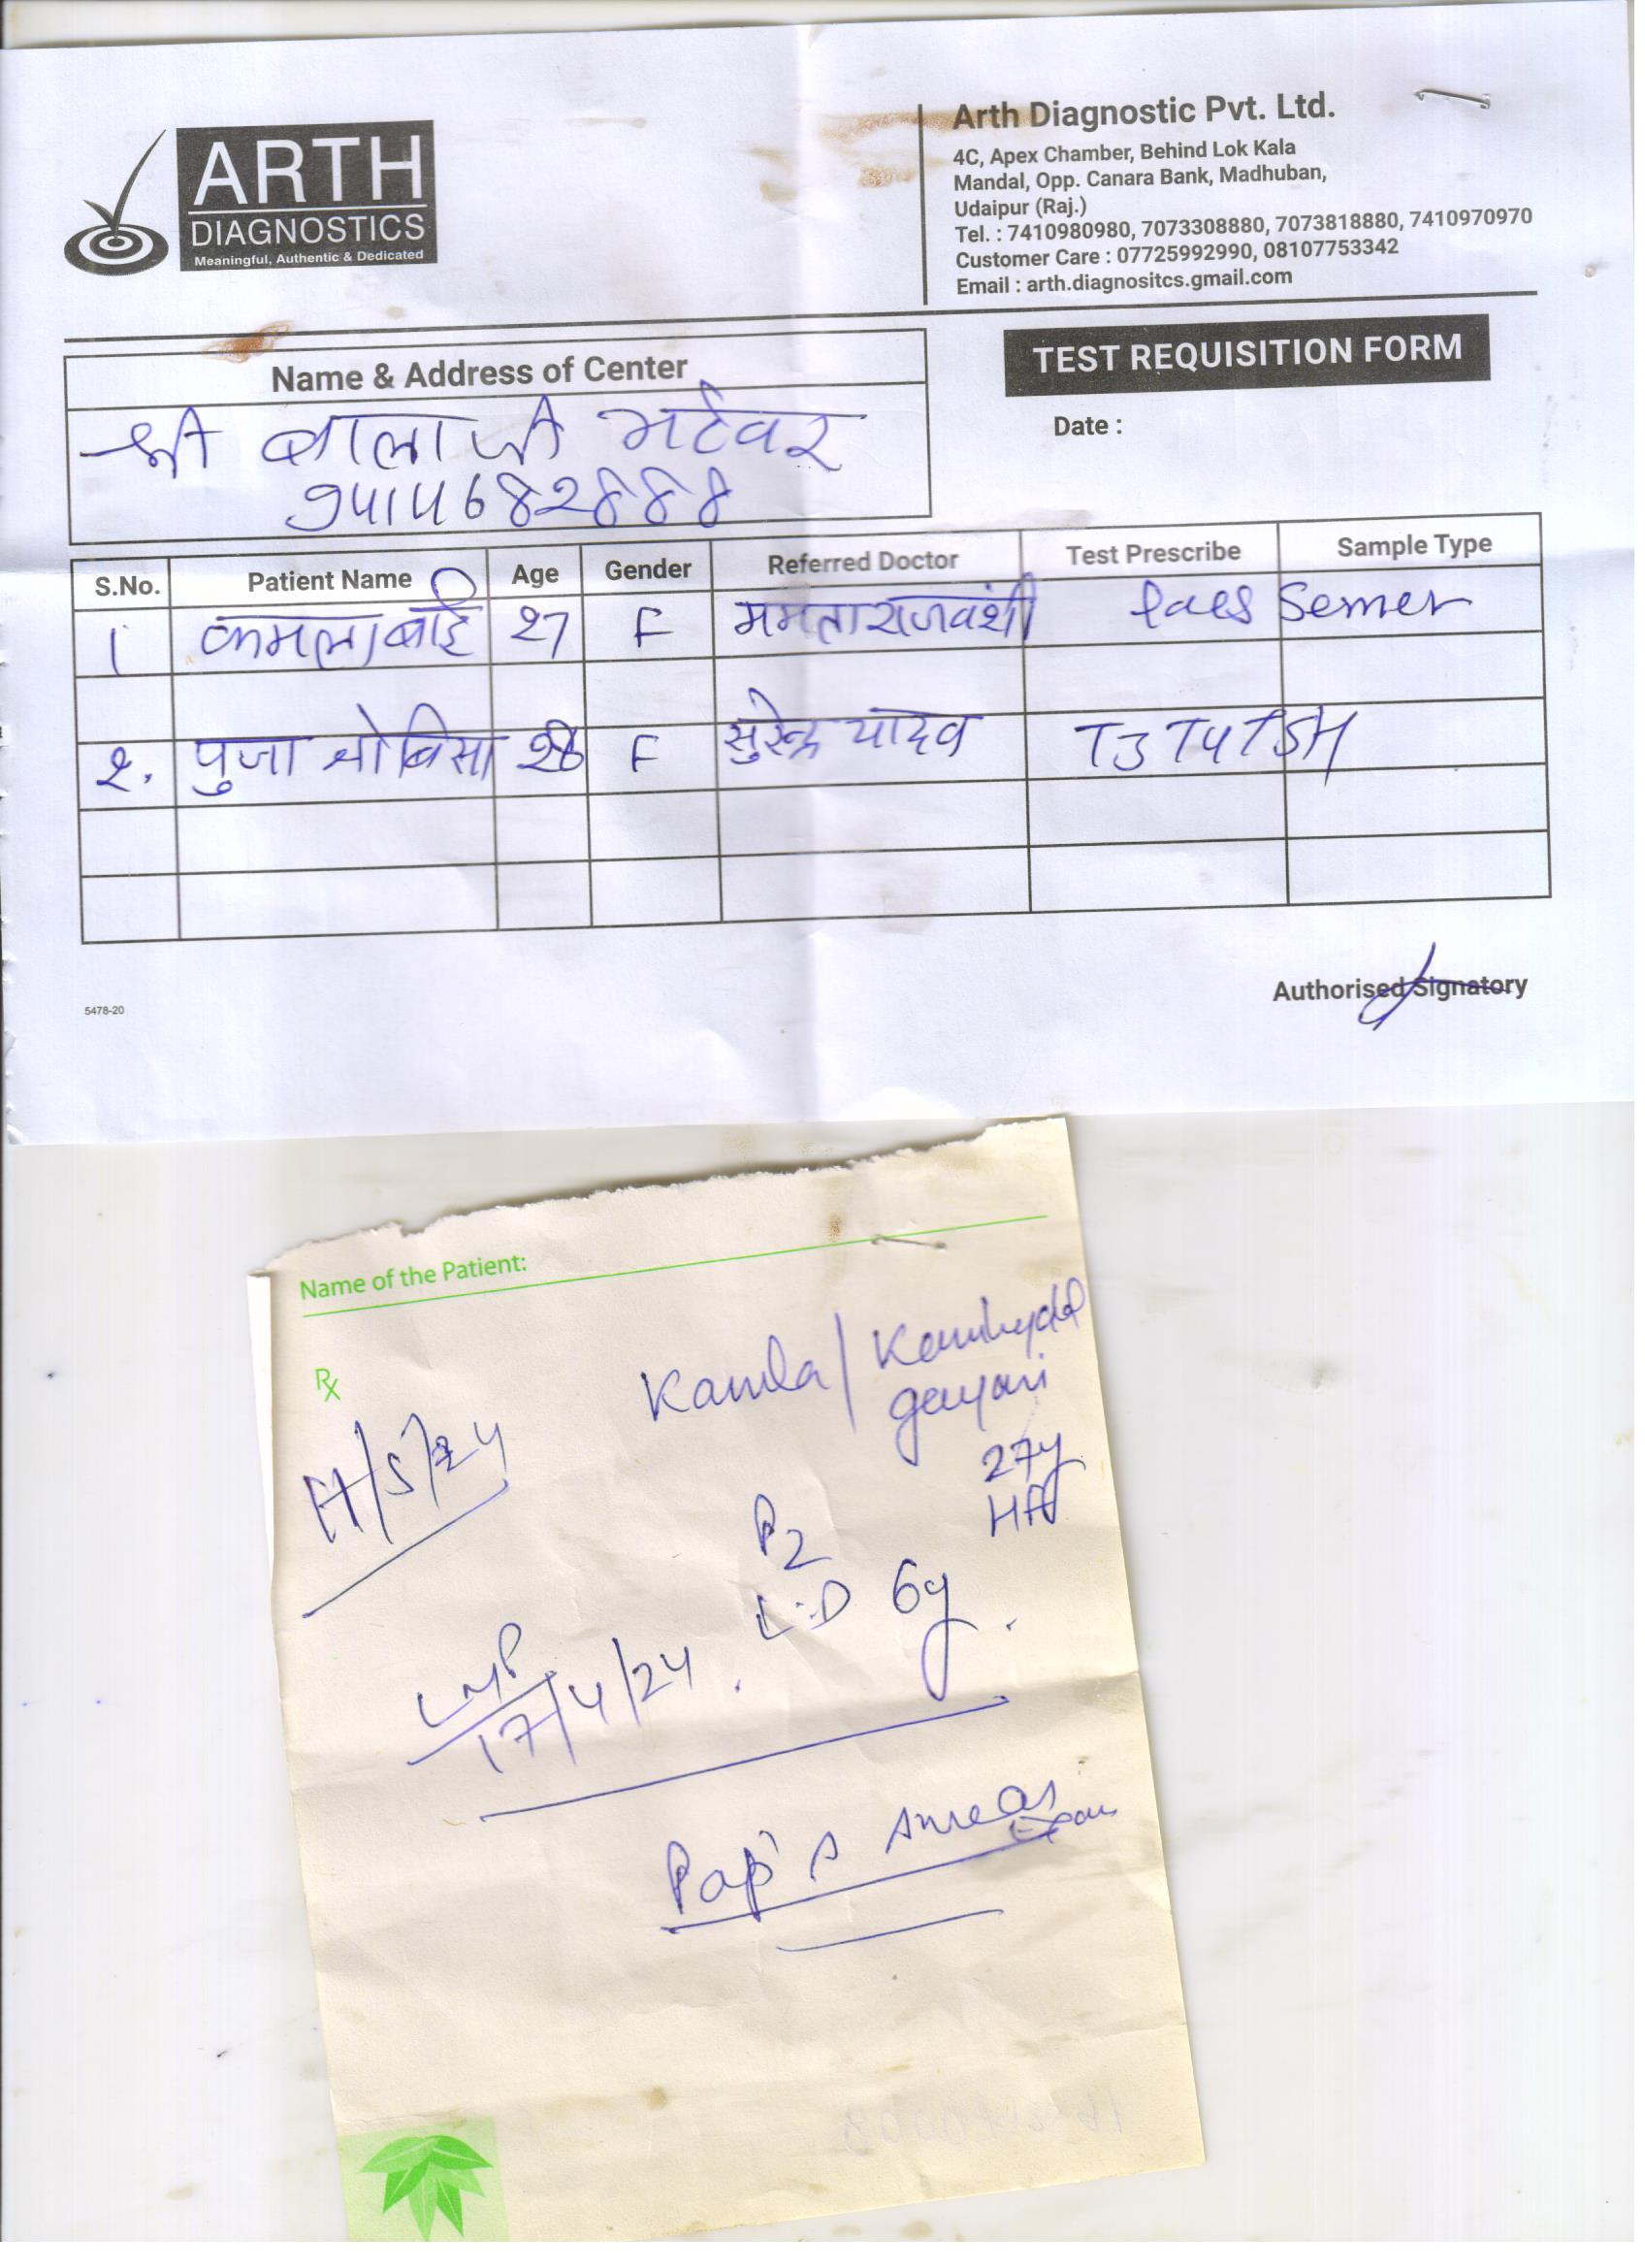 ARTH
DIAGNOSTICS
Meaningful, Authentic & Dedicated
Arth Diagnostic Pvt. Ltd.
4C, Apex Chamber, Behind Lok Kala
Mandal, Opp. Canara Bank, Madhuban,
Udaipur (Raj.)
Tel. : 7410980980, 7073308880, 7073818880, 7410970970
Customer Care : 07725992990, 08107753342
Email : arth.diagnositcs.gmail.com
TEST REQUISITION FORM
Date :
Name & Address of Center
श्री बालाजी भटेवर
9414682888
S.No. Patient Name Age Gender Referred Doctor Test Prescribe Sample Type
1 कमलाबाई 27 F ममता राजवंशी Semer
2. पुजा 28 F सुरेन्द्र यादव T3 T4 TSH
Authorised Signatory
5478-20
Name of the Patient:
Rx
Kamla/
27y
/5/24
P2
L.D 6y.
LMP
17/4/24.
Pap's smear